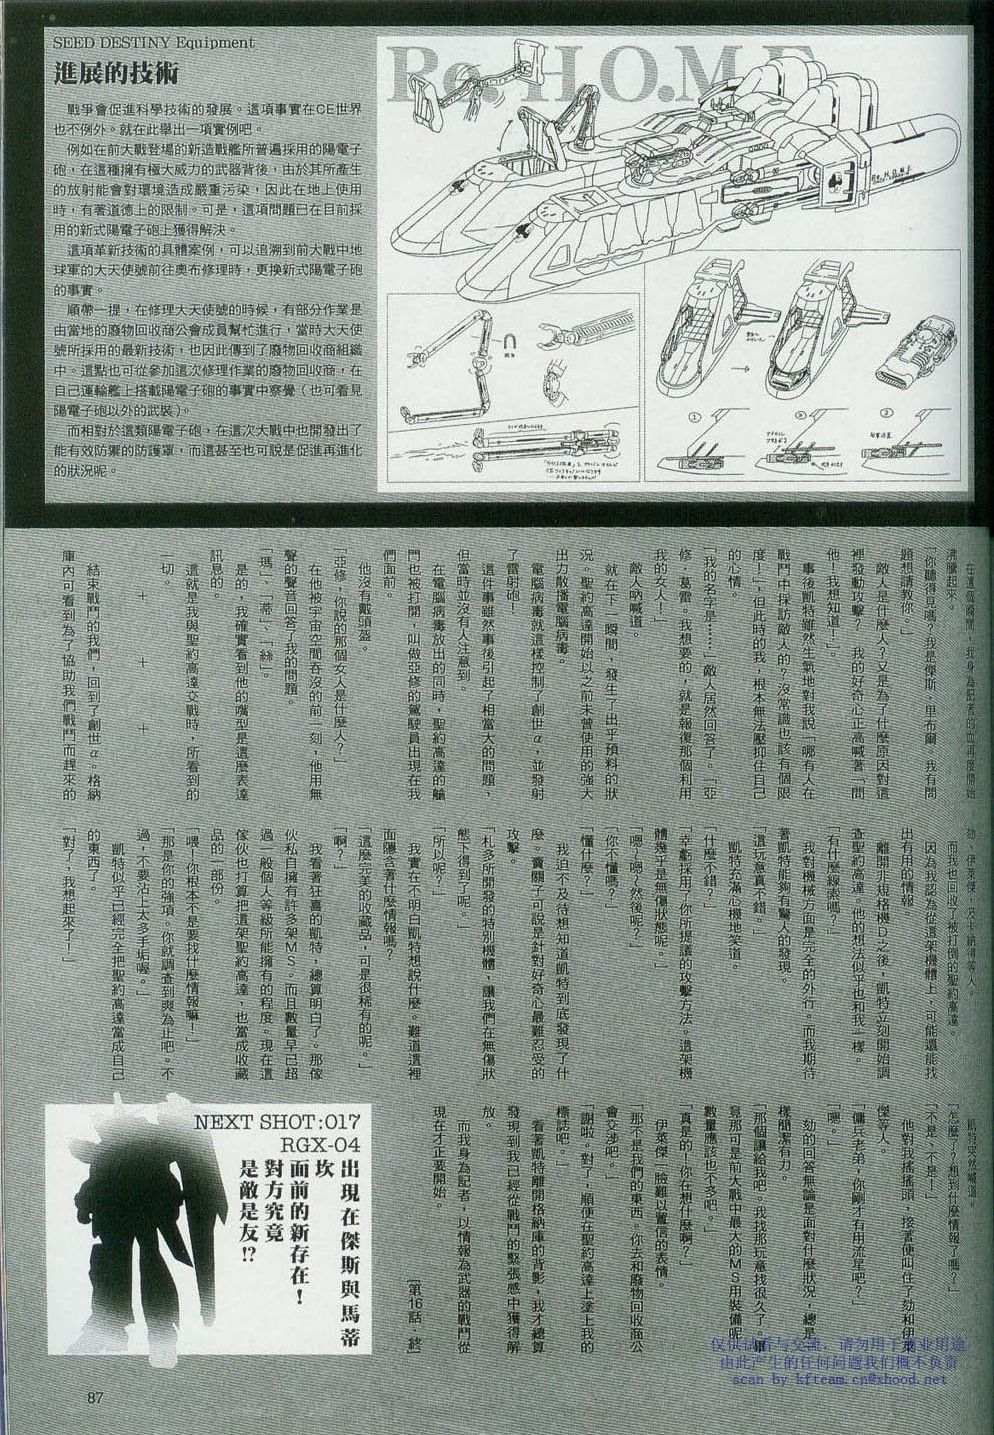 SEED DESTINY Equipment
進展的技術
戰爭會促進科學技術的發展。這項事實在CE世界
也不例外。就在此舉出一項實例吧。
例如在前大戰登場的新造戰艦所普遍採用的陽電子
砲，在這種擁有極大威力的武器背後，由於其所產生
的放射能會對環境造成嚴重污染，因此在地上使用
時，有著道德上的限制。可是，這項問題已在目前採
用的新式陽電子砲上獲得解決。
這項革新技術的具體案例，可以追溯到前大戰中地
球軍的大天使號前往奧布修理時，更換新式陽電子砲
的事實。
順帶一提，在修理大天使號的時候，有部分作業是
由當地的廢物回收商公會成員幫忙進行，當時大天使
號所採用的最新技術，也因此傳到了廢物回收商組織
中。這點也可從參加這次修理作業的廢物回收商，在
自己運輸艦上搭載陽電子砲的事實中察覺（也可看見
陽電子砲以外的武裝）。
而相對於這類陽電子砲，在這次大戰中也開發出了
能有效防禦的防護罩，而這甚至也可說是促進再進化
的狀況呢。
Re.H.O.M.E
①
②
③
在這個瞬間，我身為記者的血再度開始
沸騰起來。
「你聽得見嗎？我是傑斯·里布爾，我有問
題想請教你。」
敵人是什麼人？又是為了什麼原因對這
裡發動攻擊？我的好奇心正高喊著「問
他！我想知道！」。
事後凱特雖然生氣地對我說「哪有人在
戰鬥中採訪敵人的？沒常識也該有個限
度！」，但此時的我，根本無法壓抑住自己
的心情。
「我的名字是……」敵人居然回答了。「亞
修·葛雷。我想要的，就是報復那個利用
我的女人！」
敵人吶喊道。
就在下一瞬間，發生了出乎預料的狀
況。聖約高達開始以之前未曾使用的強大
出力散播電腦病毒。
電腦病毒就這樣控制了創世α，並發射
了雷射砲！
這件事雖然事後引起了相當大的問題，
但當時並沒有人注意到。
在電腦病毒放出的同時，聖約高達的艙
門也被打開，叫做亞修的駕駛員出現在我
們面前。
他沒有戴頭盔。
「亞修，你說的那個女人是什麼人？」
在他被宇宙空間吞沒的前一刻，他用無
聲的聲音回答了我的問題。
「瑪」、「蒂」、「絲」
是的，我確實看到他的嘴型是這麼表達
訊息的。
這就是我與聖約高達交戰時，所看到的
一切。
＋　＋　＋
結束戰鬥的我們，回到了創世α。格納
庫內可看到為了協助我們戰鬥而趕來的
劾、伊萊傑，及卡納得等人。
而我也回收了被打倒的聖約高達。
因為我認為從這架機體上，可能還能找
出有用的情報。
離開非規格機D之後，凱特立刻開始調
查聖約高達。他的想法似乎也和我一樣。
「有什麼線索嗎？」
我對機械方面是完全的外行。而我期待
著凱特能夠有驚人的發現。
「這玩意真不錯。」
凱特充滿心機地笑道。
「什麼不錯？」
「幸虧採用了你所提議的攻擊方法，這架機
體幾乎是無傷狀態呢。」
「嗯？嗯？然後呢？」
「你不懂嗎？」
「懂什麼？」
我迫不及待想知道凱特到底發現了什
麼。賣關子可說是針對好奇心最難忍受的
攻擊。
「札多所開發的特別機體，讓我們在無傷狀
態下得到了呢。」
「所以呢？」
我實在不明白凱特想說什麼。難道這裡
面隱含著什麼情報嗎？
「這麼完美的收藏品，可是很稀有的呢。」
「啊？」
我看著狂喜的凱特，總算明白了。那傢
伙私自擁有許多架MS。而且數量早已超
過一般個人等級所能擁有的程度。現在這
傢伙也打算把這架聖約高達，也當成收藏
品的一部份。
「喂！你根本不是要找什麼情報嘛！」
「那是你的強項。你就調查到爽為止吧。不
過，不要沾上太多手垢喔。」
凱特似乎已經完全把聖約高達當成自己
的東西了。
「對了，我想起來了！」
凱特突然喊道。
「怎麼？？想到什麼情報了嗎？」
「不是、不是！」
他對我搖搖頭，接著便叫住了劾和伊萊
傑等人。
「傭兵老弟，你剛才有用流星吧？」
「嗯。」
劾的回答無論是面對什麼狀況，總是一
樣簡潔有力。
「那個讓給我吧。我找那玩意找很久了。畢
竟那可是前大戰中最大的MS用裝備呢。
數量應該也不多吧。」
「真是的！你在想什麼啊？」
伊萊傑一臉難以置信的表情。
「那不是我們的東西。你去和廢物回收商公
會交涉吧。」
「謝啦。對了，順便在聖約高達上塗上我的
標誌吧。」
看著凱特離開格納庫的背影，我才總算
發現到我已經從戰鬥的緊張感中獲得解
放。
而我身為記者，以情報為武器的戰鬥從
現在才正要開始。
［第16話　終］
NEXT SHOT:017
RGX-04
出現在傑斯與馬蒂
坎
面前的新存在！
對方究竟
是敵是友!?
仅供试看与交流，请勿用于商业用途
由此产生的任何问题我们概不负责
scan by kfteam.cn@xhood.net
87